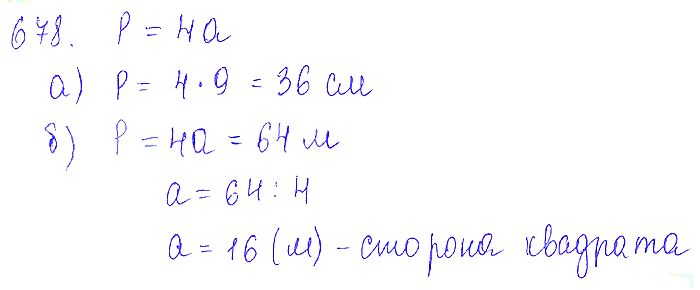 678. P = 4a
а) P = 4 · 9 = 36 см
б) P = 4a = 64 м
a = 64 : 4
a = 16 (м) - сторона квадрата